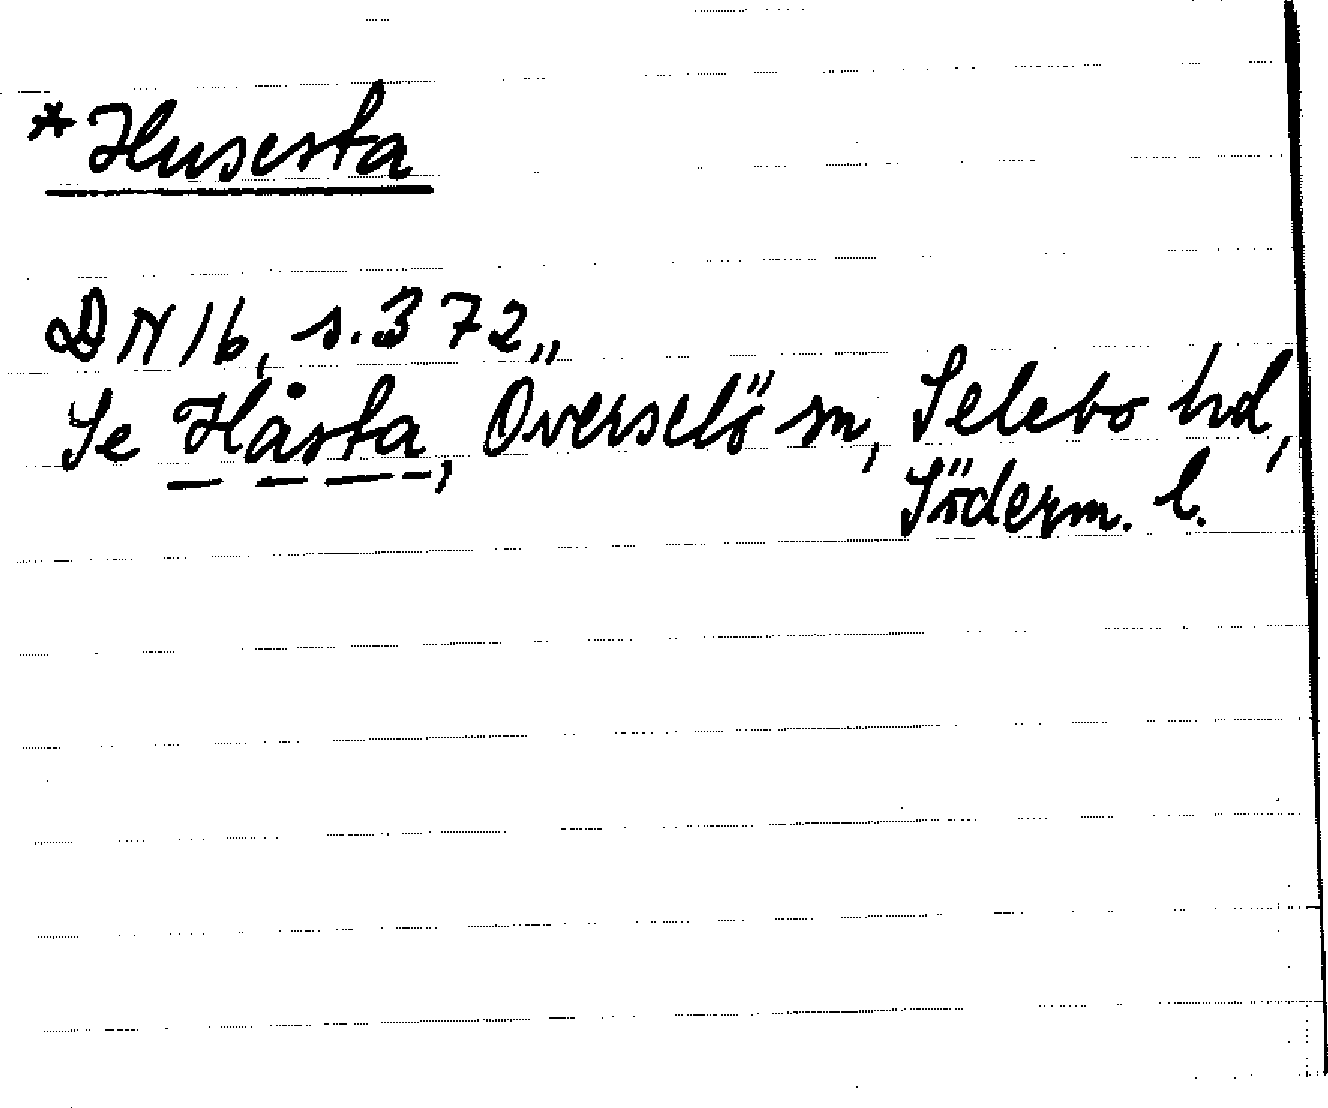 *Husesta
DN 16, s. 372,,
Se Håsta, Överselö sn, Selebo hd,
Söderm. l.